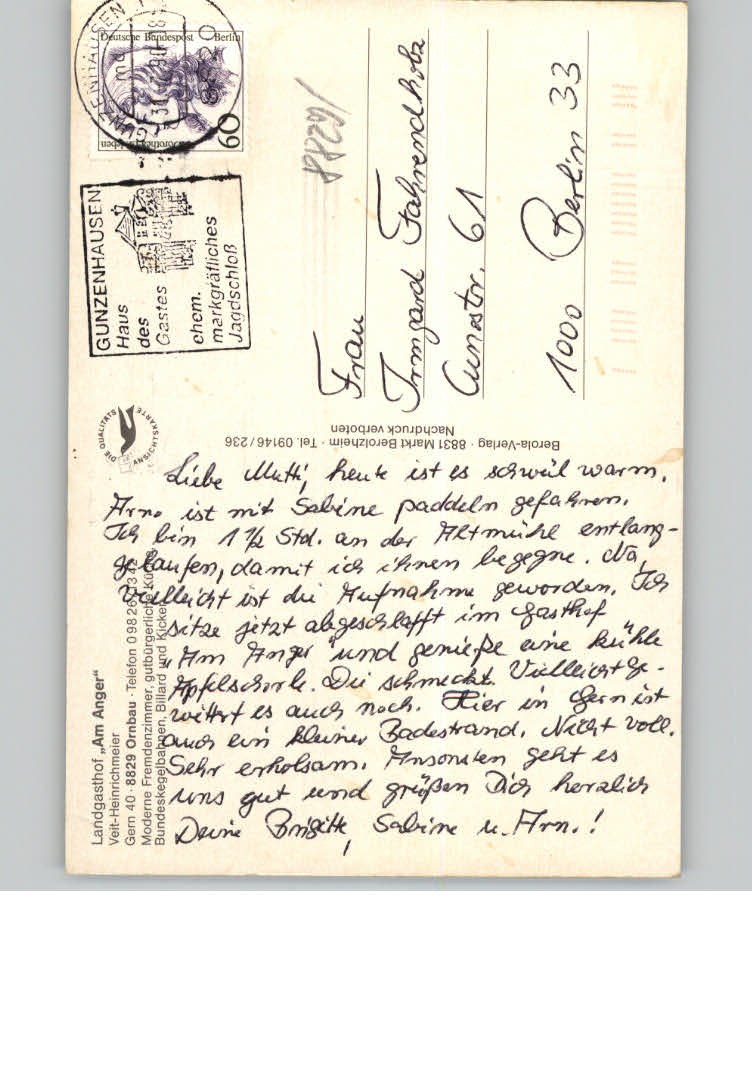 Deutsche Bundespost Berlin
60
GUNZENHAUSEN
GUNZENHAUSEN
Haus
des
Gastes
ehem.
markgräfliches
Jagdschloß
88291
Frau
Irmgard Fahrendholz
Cunostr. 61
1000 Berlin 33
DIE QUALITÄTS
ANSICHTSKARTE
Berola-Verlag · 8831 Markt Berolzheim · Tel. 09146/236
Nachdruck verboten
Landgasthof „Am Anger“
Veit-Heinrichmeier
Gern 40 · 8829 Ornbau · Telefon 09826/1342
Moderne Fremdenzimmer, gutbürgerliche Küche
Bundeskegelbahnen, Billard und Kicker
Liebe Mutti, heute ist es schwül warm.
Arno ist mit Sabine paddeln gefahren.
Ich bin 1 1/2 Std. an der Altmühl entlang-
gelaufen, damit ich ihnen begegne. Na,
vielleicht ist die Aufnahme geworden. Ich
sitze jetzt abgeschlafft im Gasthof
„Am Anger“ und genieße eine kühle
Apfelschorle. Die schmeckt. Vielleicht ge-
wittert es auch noch. Hier in Gern ist
auch ein kleiner Badestrand. Nicht voll.
Sehr erholsam. Ansonsten geht es
uns gut und grüßen Dich herzlich
Deine Brigitte, Sabine u. Arno!